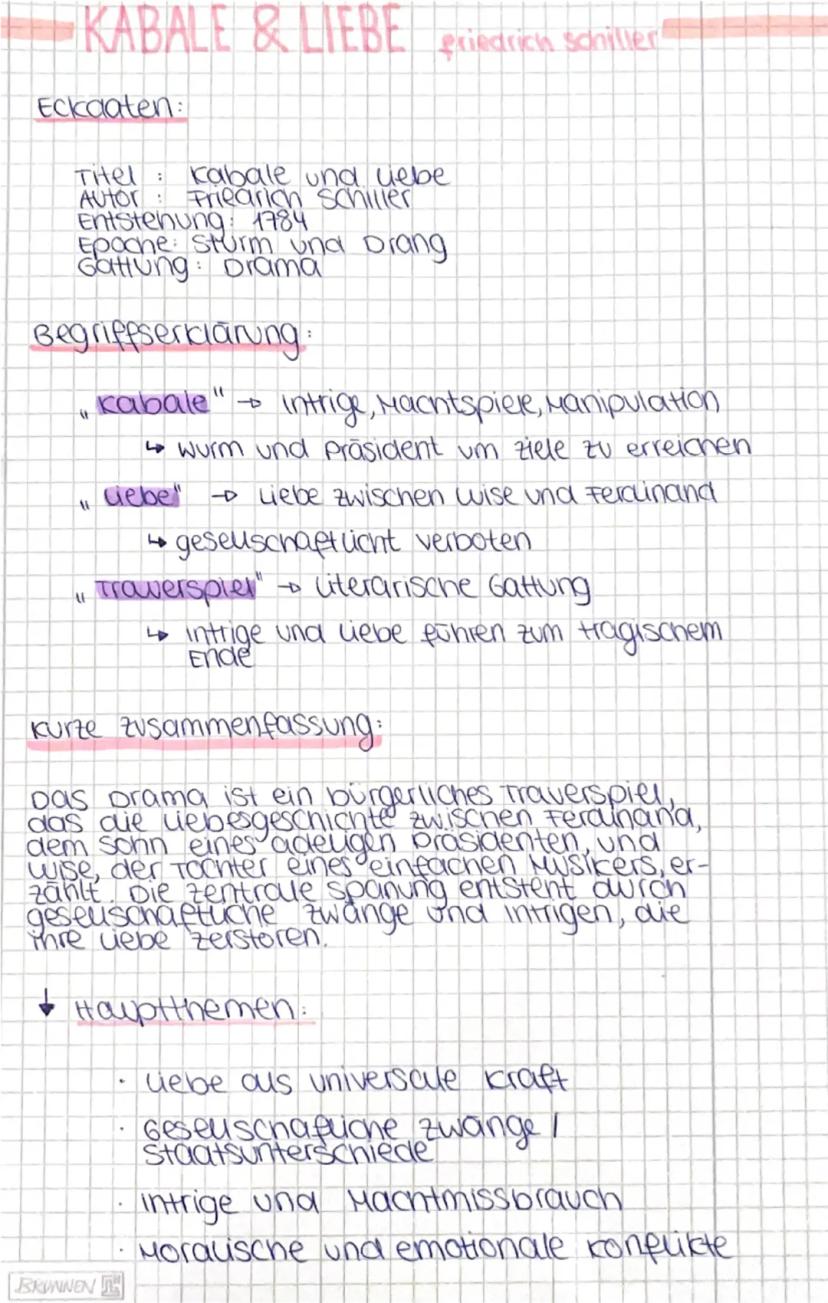 KABALE & LIEBE friedrich schiller
Eckdaten:
Titel : Kabale und Liebe
Autor : Friedrich Schiller
Entstehung: 1784
Epoche: Sturm und Drang
Gattung: Drama
Begriffserklärung:
„Kabale" → Intrige, Machtspiele, Manipulation
↳ Wurm und Präsident um Ziele zu erreichen
„Liebe" → Liebe zwischen Luise und Ferdinand
↳ gesellschaftlicht verboten
„Trauerspiel" → Literarische Gattung
↳ Intrige und Liebe führen zum tragischem
Ende
Kurze Zusammenfassung:
Das Drama ist ein bürgerliches Trauerspiel,
das die Liebesgeschichte zwischen Ferdinand,
dem Sohn eines adeligen Präsidenten, und
Luise, der Tochter eines einfachen Musikers, er-
zählt. Die zentrale Spanung entsteht durch
gesellschaftliche Zwänge und Intrigen, die
ihre Liebe zerstören.
↓ Hauptthemen:
· Liebe als universale Kraft
· Gesellschafliche Zwänge /
Staatsunterschiede
· Intrige und Machtmissbrauch
· Moralische und emotionale Konflikte
BRUNNEN